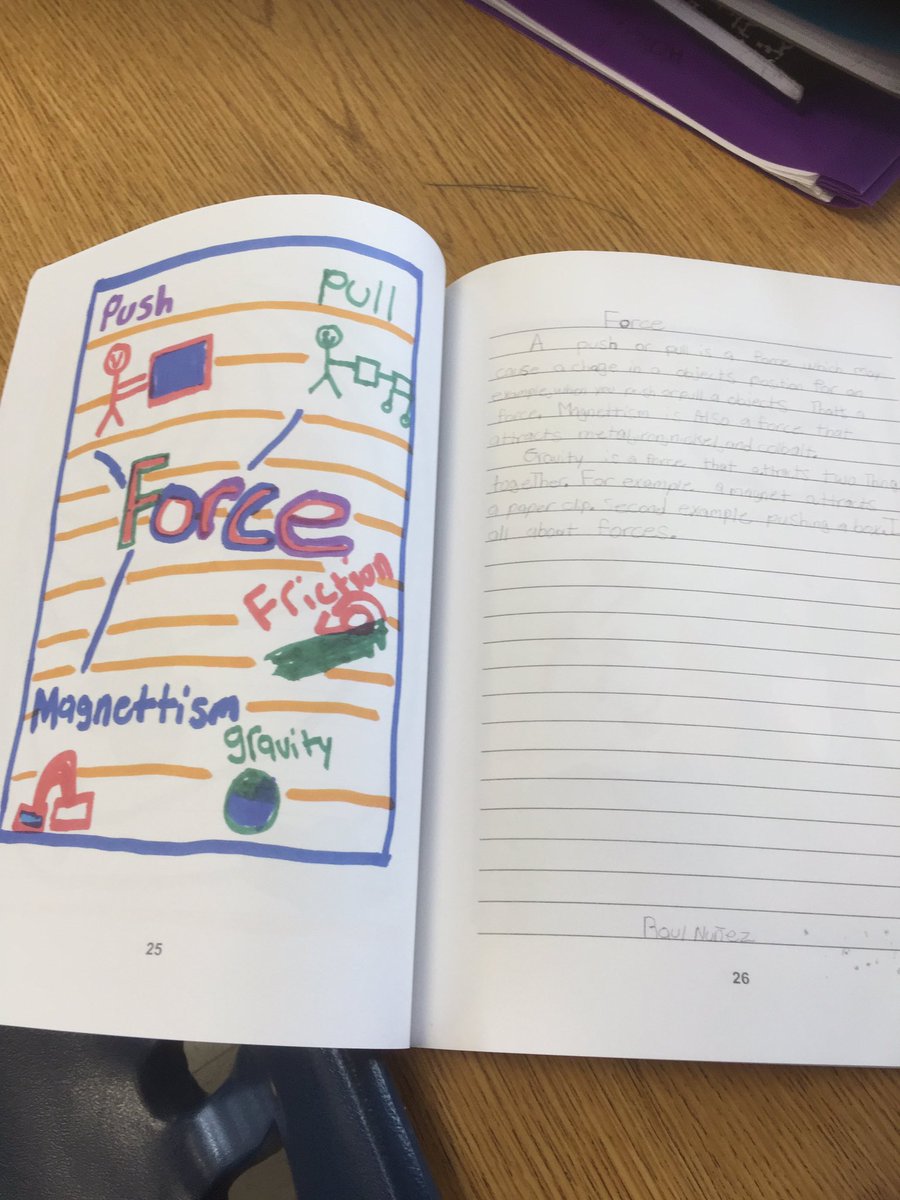 Push Pull
Force
Friction
Magnettism
gravity
25
Force
A push or pull is a force which may
cause a chage in a objects position for an
example, when you push or pull a objects. That's a
force. Magnettism is Also a force that
attracts metal, iron, nickel, and colbalt.
Gravity is a force that attracts two Thing
together. For example a magnet attracts
a paper clip. Second example pushing a box.
all about forces.
Raul Nuñez
26